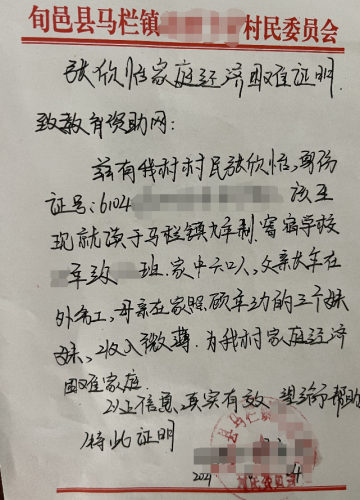 旬邑县马栏镇 村民委员会
张欣怡家庭经济困难证明.
致教育资助网:
兹有我村村民张欣怡,身份
证号:6104 该生
现就读于马栏镇九年制寄宿学校
年级 班.家中六口人,父亲长年在
外务工,母亲在家照顾年幼的三个妹
妹,收入微薄.为我村家庭经济
困难家庭.
以上信息真实有效,望给予帮助
特此证明
县马栏
村民委员会
202